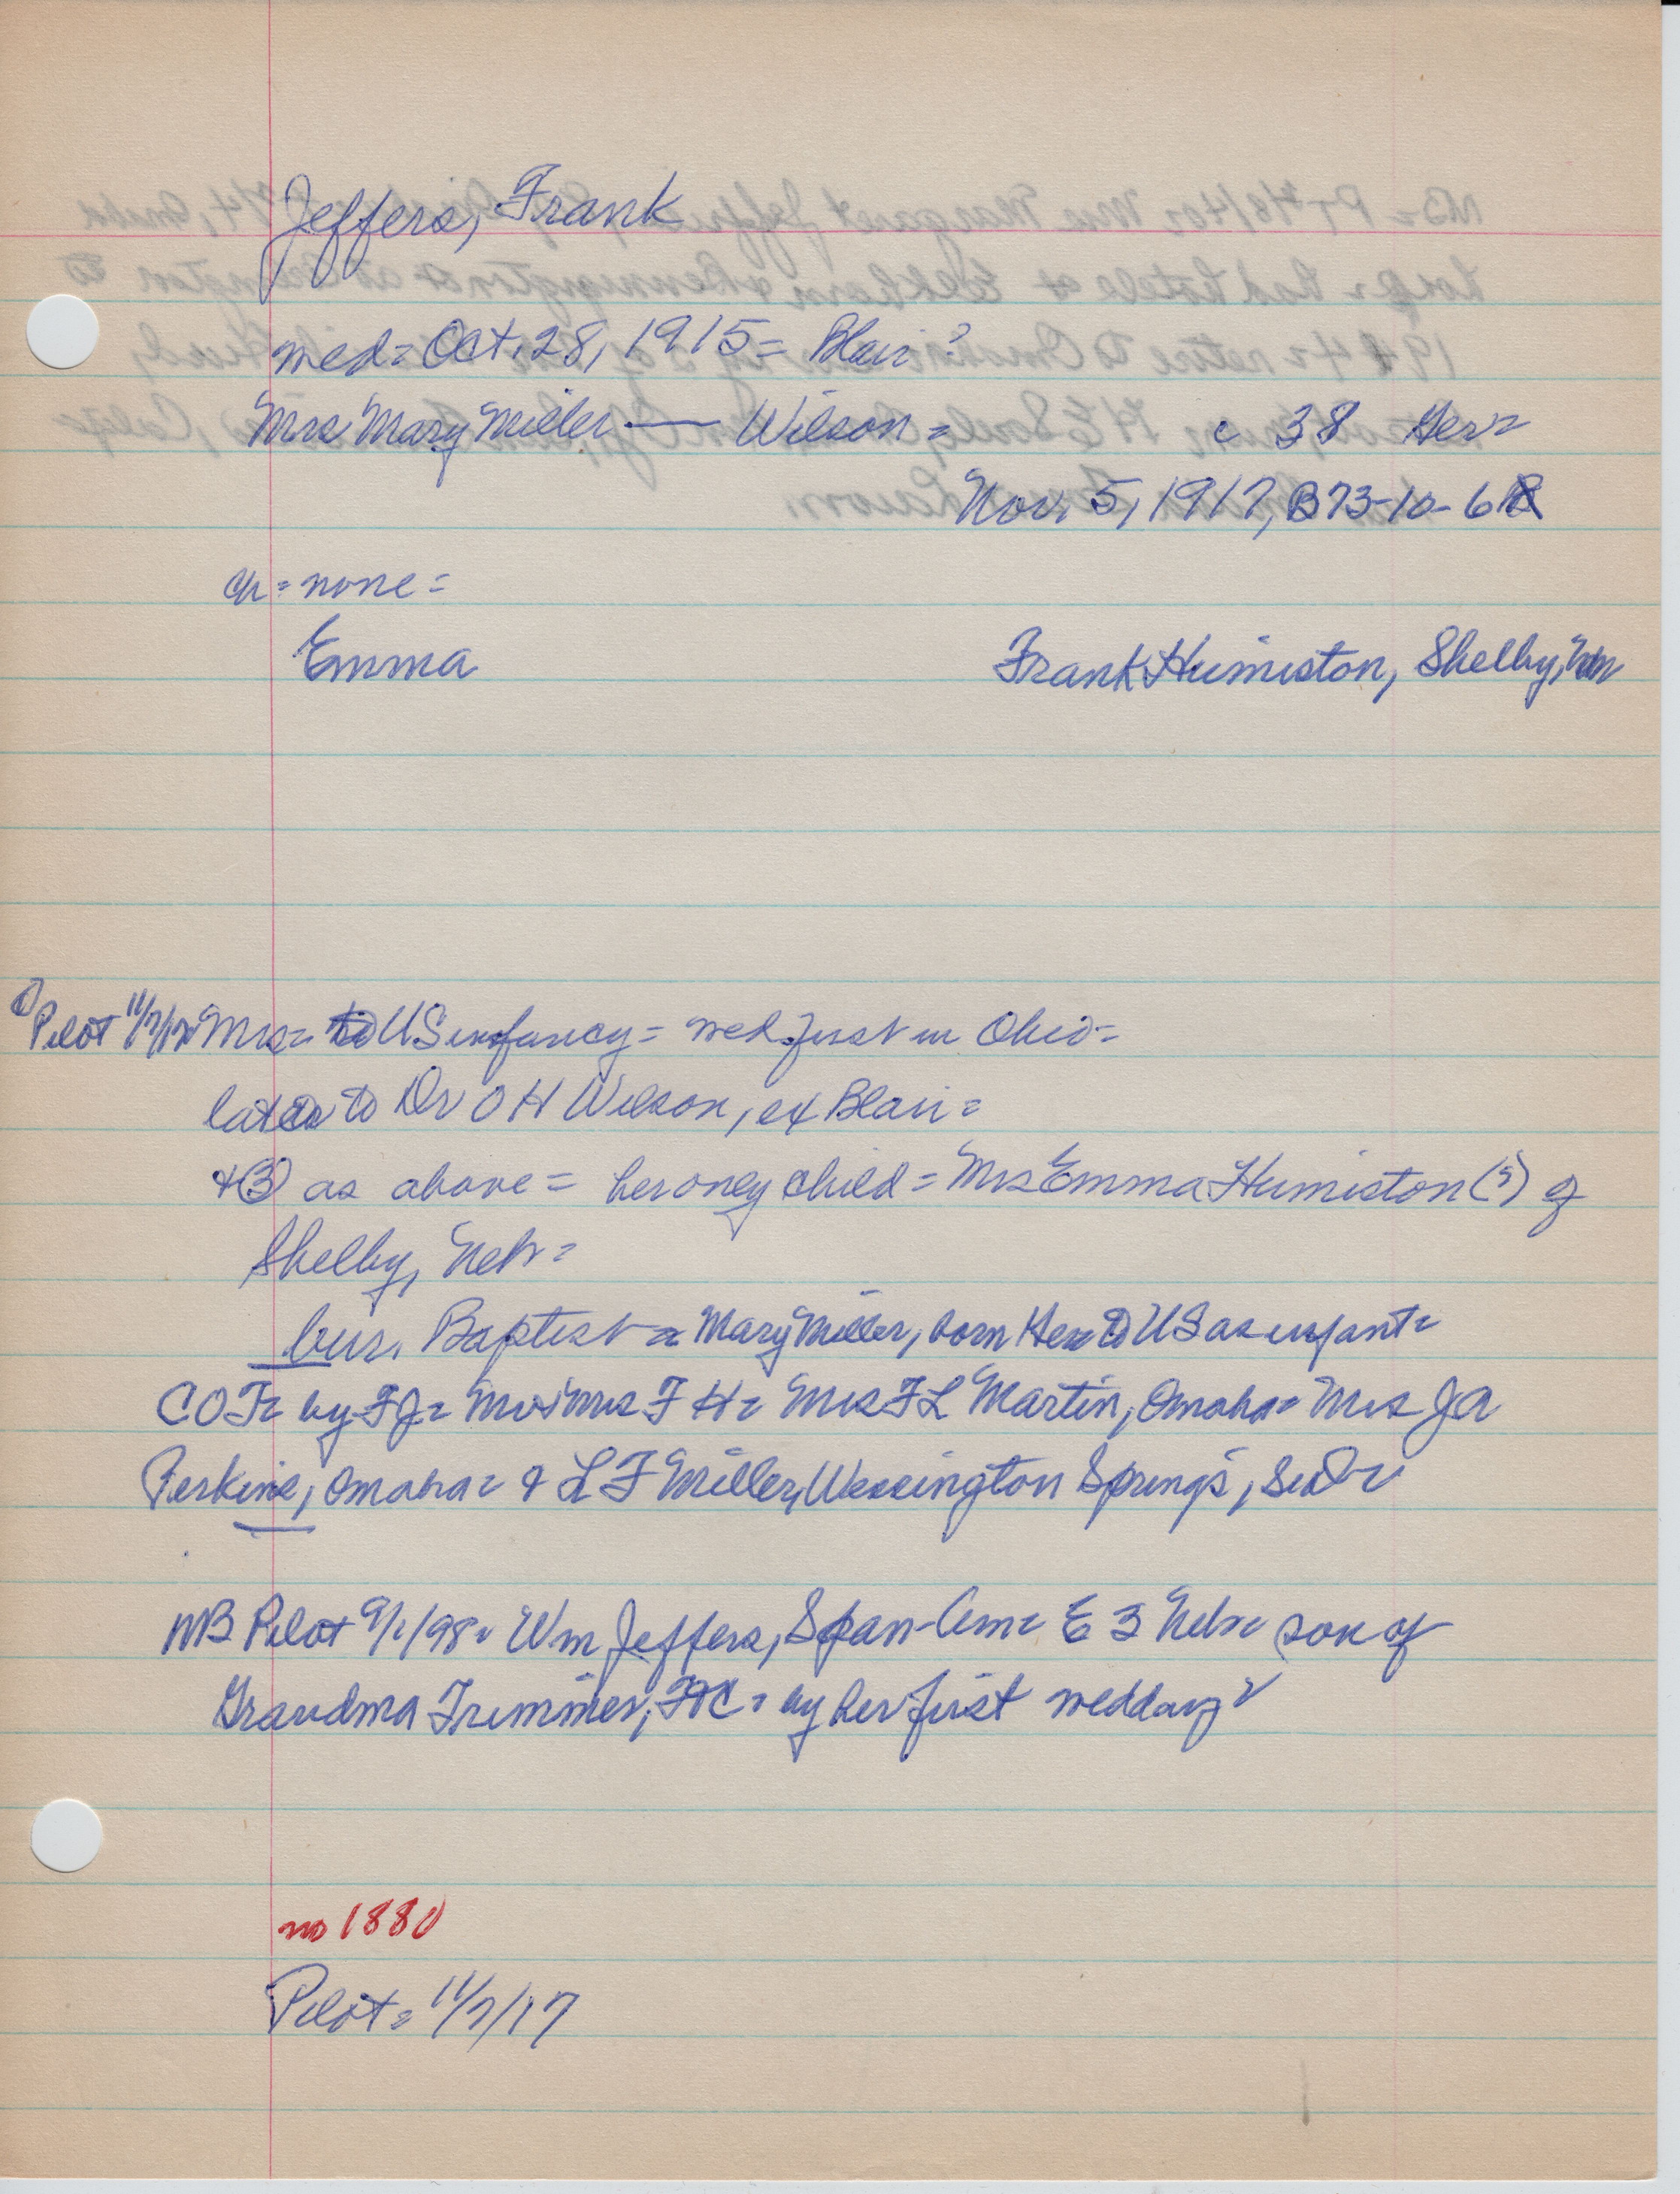 Jeffers, Frank
wed = Oct. 28, 1915 = Blair?
Mrs Mary Miller — Wilson = c 38 Ger =
Nov. 5, 1917, B 73-10-6
ch = none =
Emma Frank Humiston, Shelby,
Pilot 11/7/17 Mrs = to US infancy = wed first in Ohio =
later to Dr O H Wilson, ex Blair =
+ (3) as above = her only child = Mrs Emma Humiston (?) of
Shelby, Nebr =
bur. Baptist = Mary Miller, born Ger to US as infant =
COT = by FJ = Mr & Mrs F H = Mrs F L Martin, Omaha = Mrs J A
Perkins, Omaha = & L F Miller, Wessington Springs, SoD =
NB Pilot 9/1/98 = Wm Jeffers, Span-Am = E 3 Nebr = son of
Grandma Trimmer, FtC = by her first wedding =
no 1880
Pilot = 11/7/17